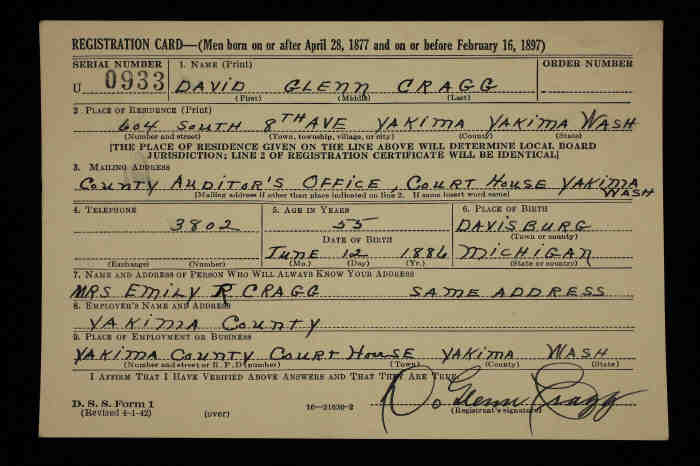 REGISTRATION CARD—(Men born on or after April 28, 1877 and on or before February 16, 1897)
SERIAL NUMBER 1. NAME (Print) ORDER NUMBER
U 0933 DAVID GLENN CRAGG
(First) (Middle) (Last)
2 PLACE OF RESIDENCE (Print)
604 SOUTH 8TH AVE YAKIMA YAKIMA WASH
(Number and street) (Town, township, village, or city) (County) (State)
[THE PLACE OF RESIDENCE GIVEN ON THE LINE ABOVE WILL DETERMINE LOCAL BOARD
JURISDICTION; LINE 2 OF REGISTRATION CERTIFICATE WILL BE IDENTICAL]
3. MAILING ADDRESS
COUNTY AUDITOR'S OFFICE, COURT HOUSE YAKIMA
WASH
[Mailing address if other than place indicated on line 2. If same insert word same]
4. TELEPHONE 5. AGE IN YEARS 6. PLACE OF BIRTH
3802 55 DAVISBURG
(Town or county)
DATE OF BIRTH
JUNE 12 1886 MICHIGAN
(Exchange) (Number) (Mo.) (Day) (Yr.) (State or country)
7. NAME AND ADDRESS OF PERSON WHO WILL ALWAYS KNOW YOUR ADDRESS
MRS EMILY R CRAGG SAME ADDRESS
8. EMPLOYER'S NAME AND ADDRESS
YAKIMA COUNTY
9. PLACE OF EMPLOYMENT OR BUSINESS
YAKIMA COUNTY COURT HOUSE YAKIMA WASH
(Number and street or R. F. D. number) (Town) (County) (State)
I AFFIRM THAT I HAVE VERIFIED ABOVE ANSWERS AND THAT THEY ARE TRUE.
D. S. S. Form 1
(Revised 4-1-42) (over) 16—21630-2 D. Glenn Cragg
(Registrant's signature)